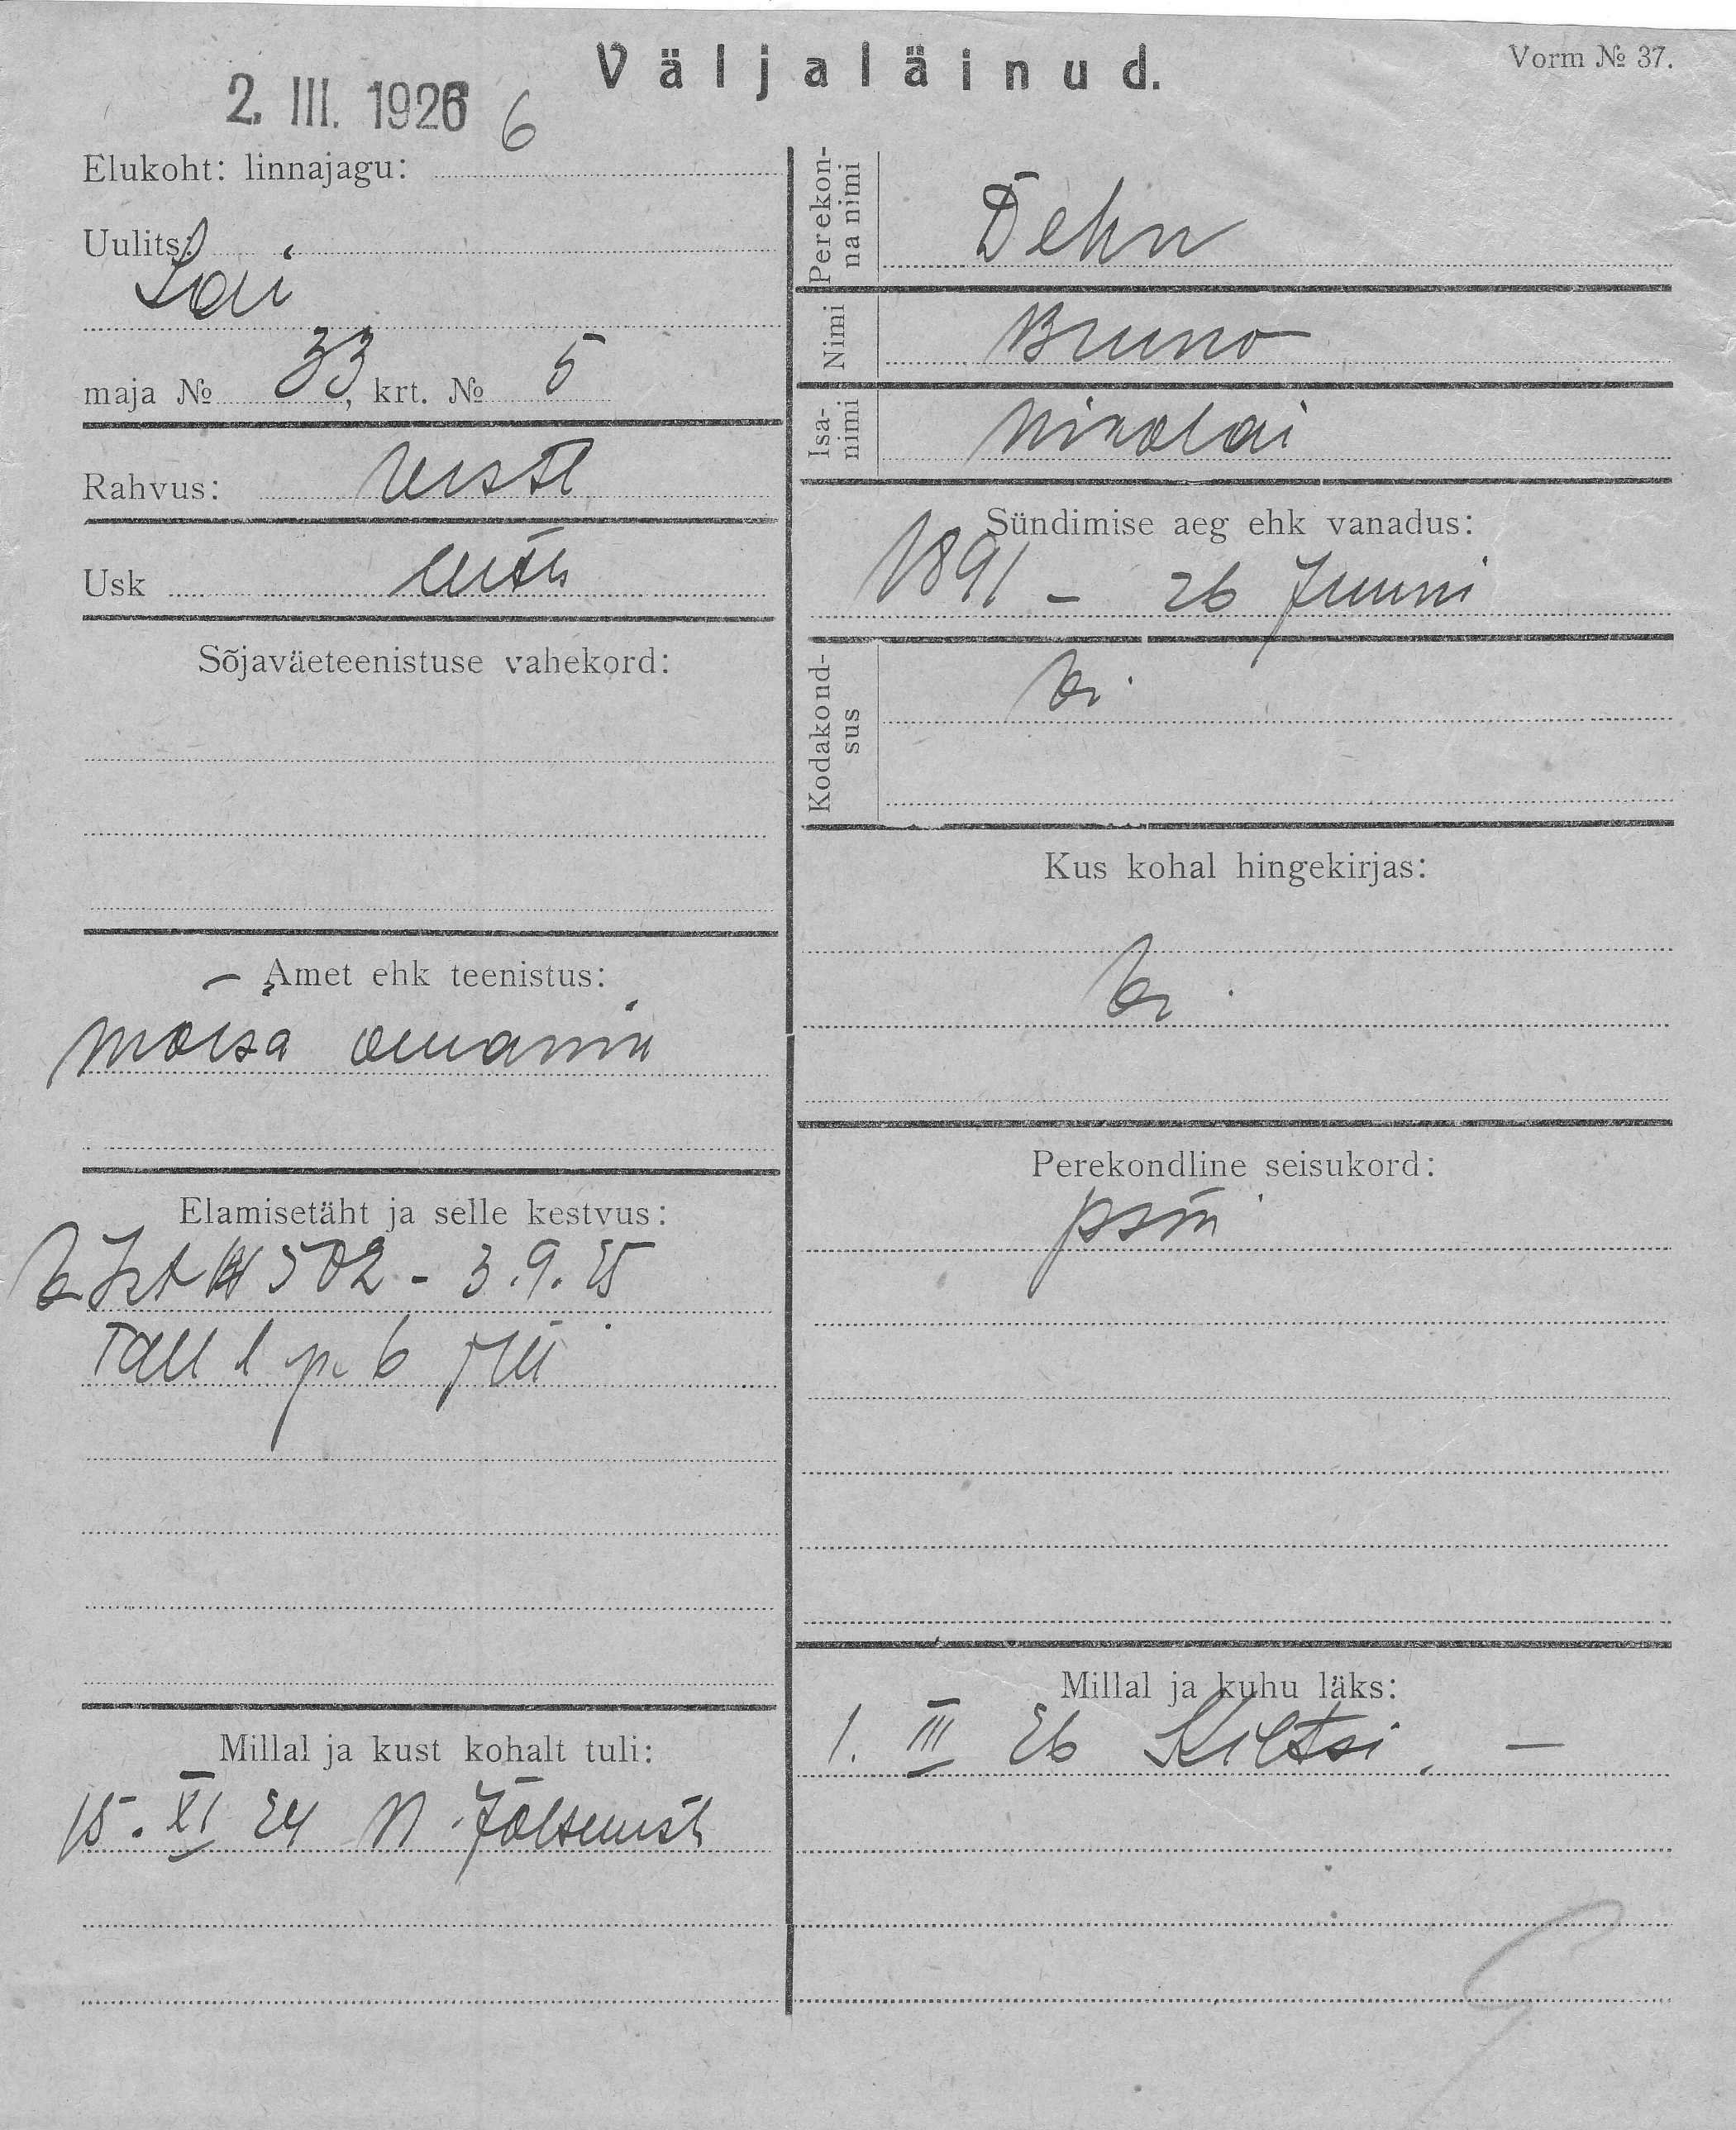 Väljaläinud.
Vorm № 37.
2. III. 1926 6
Elukoht: linnajagu:
Uulits:
Lai
maja № 33, krt. № 5
Rahvus: eestl
Usk
Sõjaväeteenistuse vahekord:
Amet ehk teenistus:
moisa omanik
Elamisetäht ja selle kestvus:
502 - 3.9.25
Tall
Millal ja kust kohalt tuli:
15. XI 24
Perekon-
na nimi
Dehn
Nimi
Bruno
Isa-
nimi
Nikolai
Sündimise aeg ehk vanadus:
1891 - 26 Juuni
Kodakond-
sus
Kus kohal hingekirjas:
Perekondline seisukord:
Millal ja kuhu läks:
1. III 26 Kiltsi. —